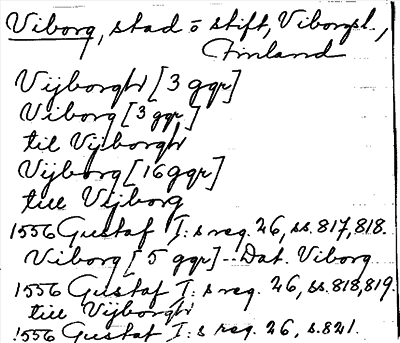 Viborg, stad o stift, Viborgsl.,
Finland
Vijborgh [3 ggr]
Viborg [3 ggr]
til Vijborgh
Vijborg [16 ggr]
till Vijborg
1556 Gustaf I:s reg. 26, ss. 817, 818.
Viborg [5 ggr] -- Dat. Viborg
1556 Gustaf I:s reg. 26, ss. 818, 819.
till Vijborgh
1556 Gustaf I:s reg. 26, s. 821.